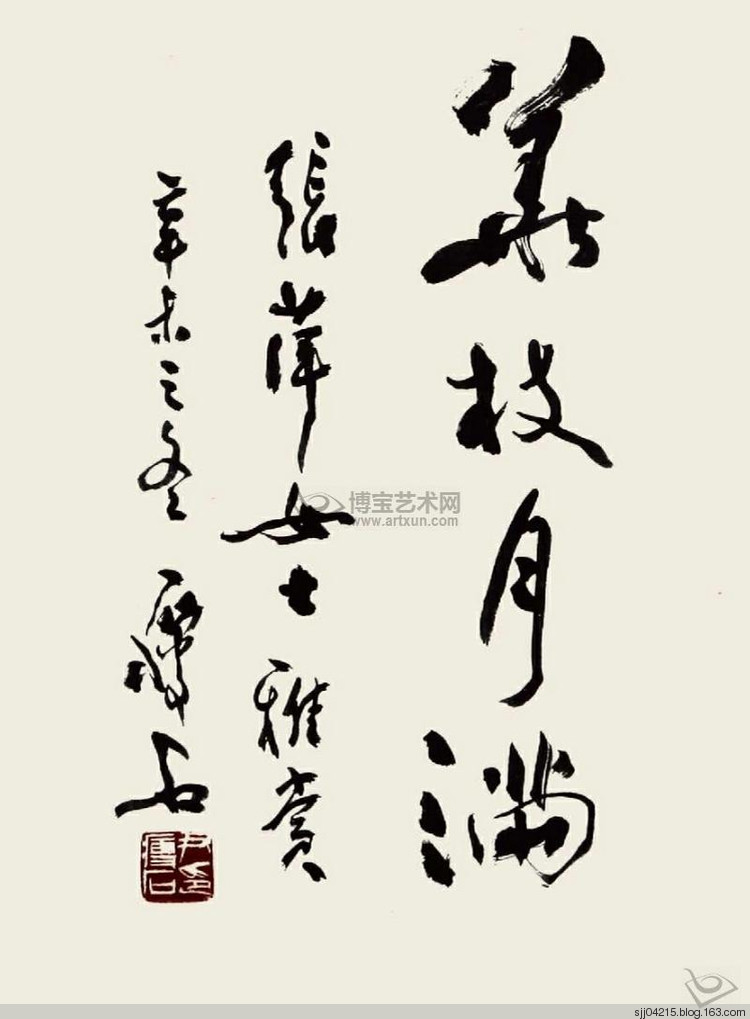 華枝月滿
張萍女士雅賞
辛未之冬 瘦石
尹印瘦石
博宝艺术网
www.artxun.com
sjj04215.blog.163.com